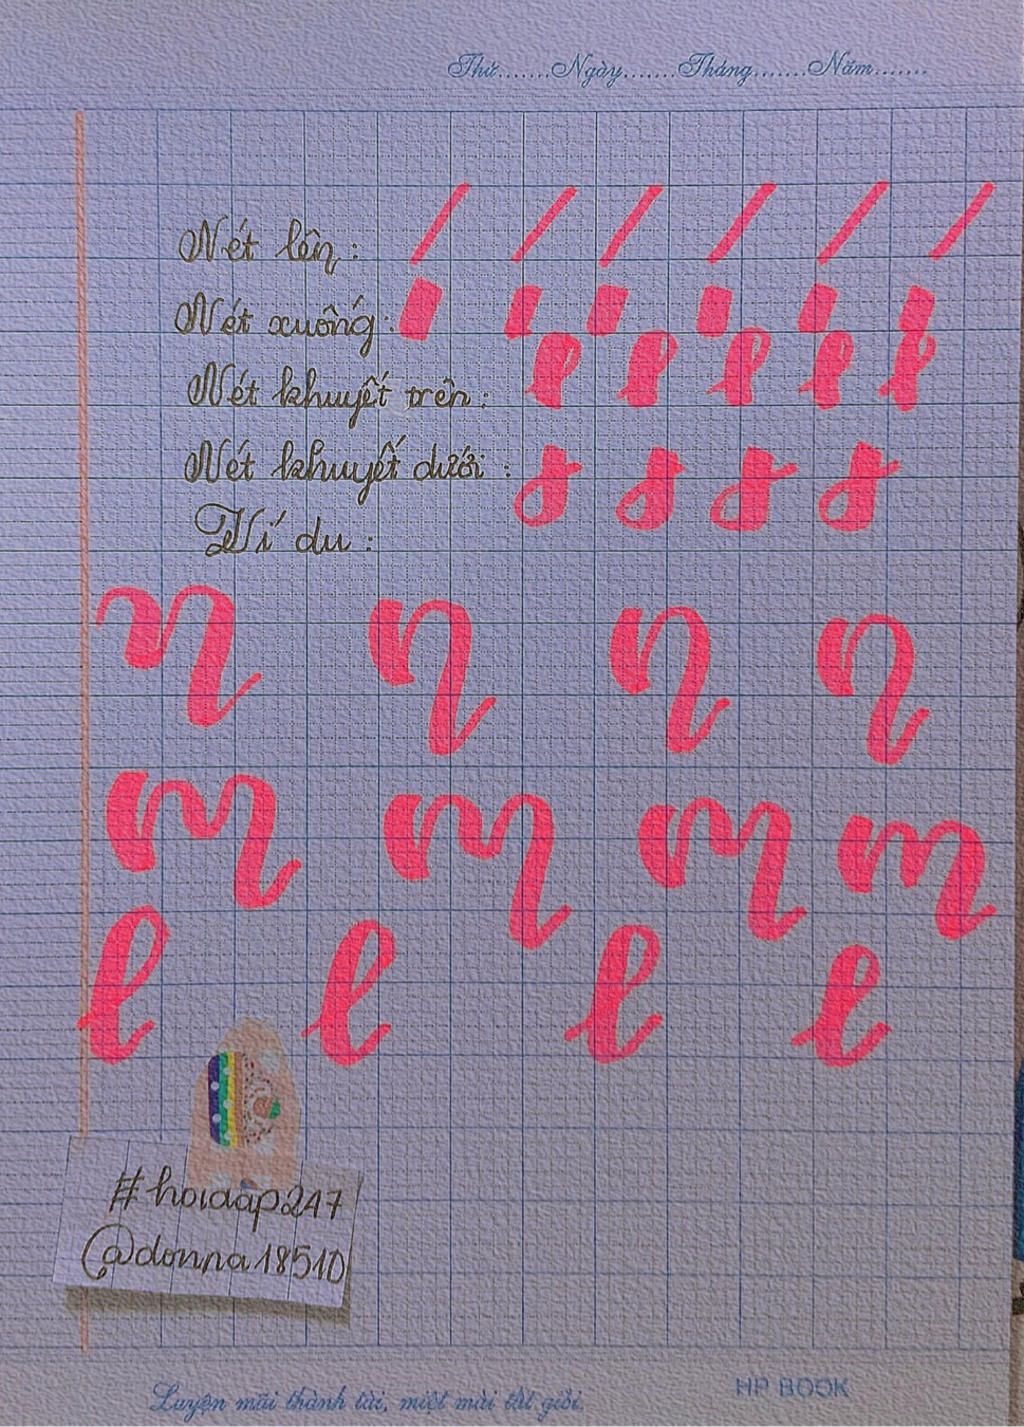 Thứ.......Ngày.......Tháng.......Năm.......
Nét lên:
Nét xuống:
Nét khuyết trên:
Nét khuyết dưới:
Ví du:
n n n n
m m m m
l l l l
#hoidap247
@donna18510
Luyện mãi thành tài, miệt mài tất giỏi.
HP BOOK